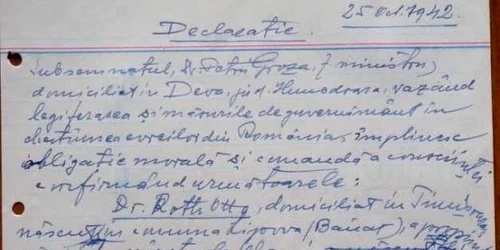 25 Oct. 1942.
Declarație.
Subsemnatul, Dr Petru Groza, f. ministru,
domiciliat in Deva, jud. Hunedoara, văzând
legiferarea și măsurile de guvernământ în
chestiunea evreilor din România, împlinesc
obligație morală și comandă a conștiinței
confirmând următoarele:
Dr. Roth Otto, domiciliat în Timișoara,
născut în comuna Lipova (Banat), a